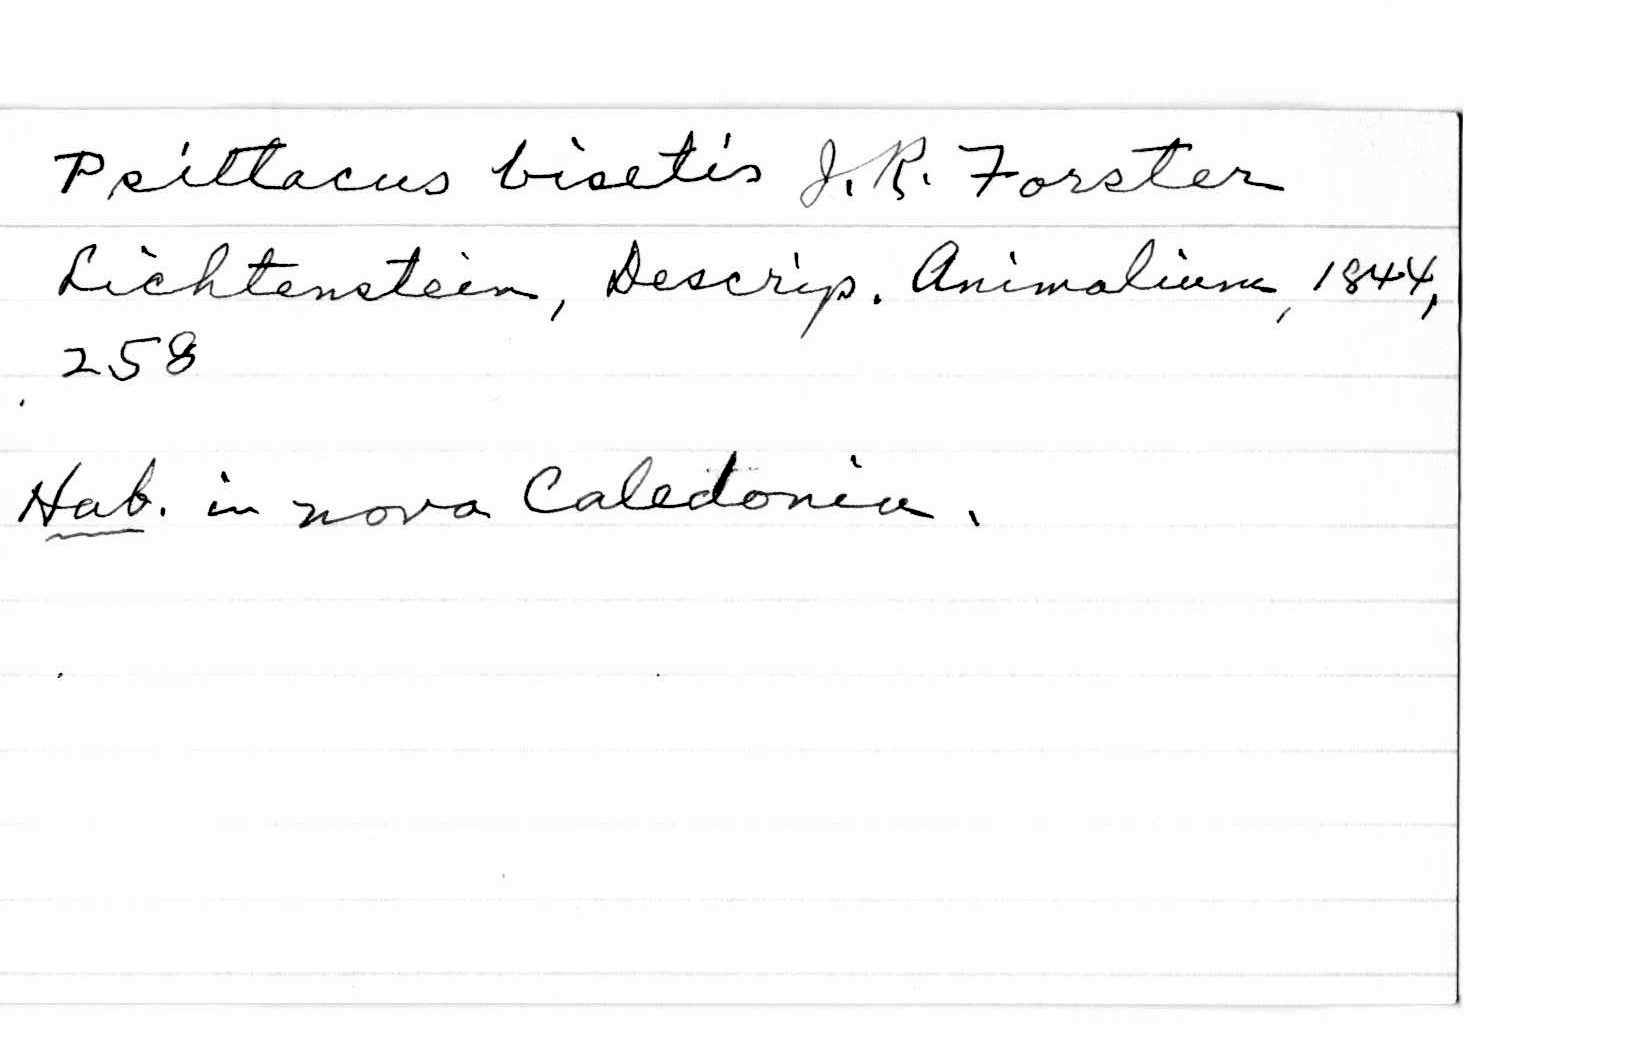 Psittacus bisetis J. R. Forster
Lichtenstein, Descrip. Animalium, 1844,
258
Hab. in nova Caledonia.